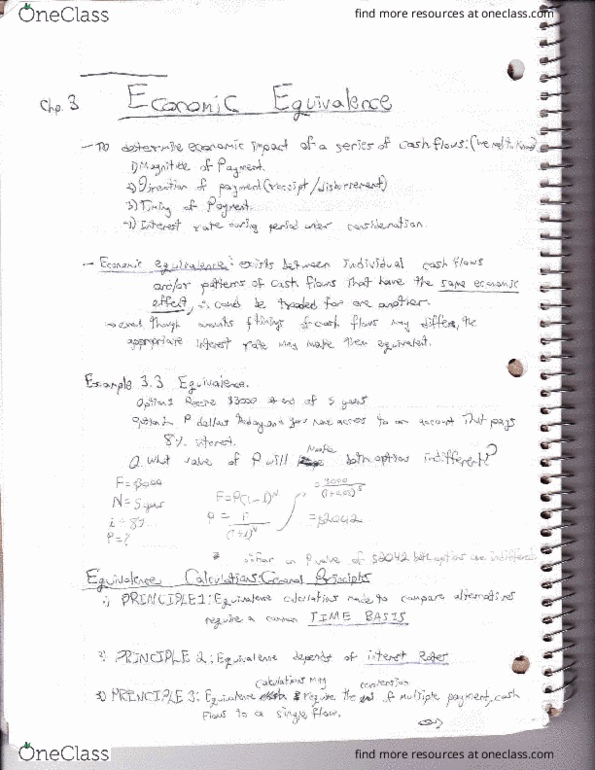 OneClass
find more resources at oneclass.com
Chp. 3
Economic Equivalence
- To determine economic impact of a series of cash flows: (we need to know)
1) Magnitude of Payment
2) Direction of payment (receipt/disbursement)
3) Timing of Payment.
4) Interest rate during period under consideration.
- Economic equivalence: exists between individual cash flows
and/or patterns of cash flows that have the same economic
effect, ∴ could be traded for one another.
→ even though amounts & timings of cash flows may differ, the
appropriate interest rate may make them equivalent.
Example 3.3 Equivalence.
Option 1 Receive $3000 at end of 5 years
Option 2 P dollars today and you have access to an account that pays
8% interest.
Q. What value of P will make both option indifferent?
F=$3000
N=5 years
i = 8%
P=?
F=P(1+i)^N
P = F/(1+i)^N
= 3000/(1+0.08)^5
=$2042
P value of $2042 both options are indifferent
Equivalence Calculations: General Principles
1) PRINCIPLE 1: Equivalence calculations made to compare alternatives
require a common TIME BASIS
2) PRINCIPLE 2: Equivalence depends of interest Rates
3) PRINCIPLE 3: Equivalence calculations may require the conversion of multiple payment, cash
flows to a single flow.
OneClass
find more resources at oneclass.com